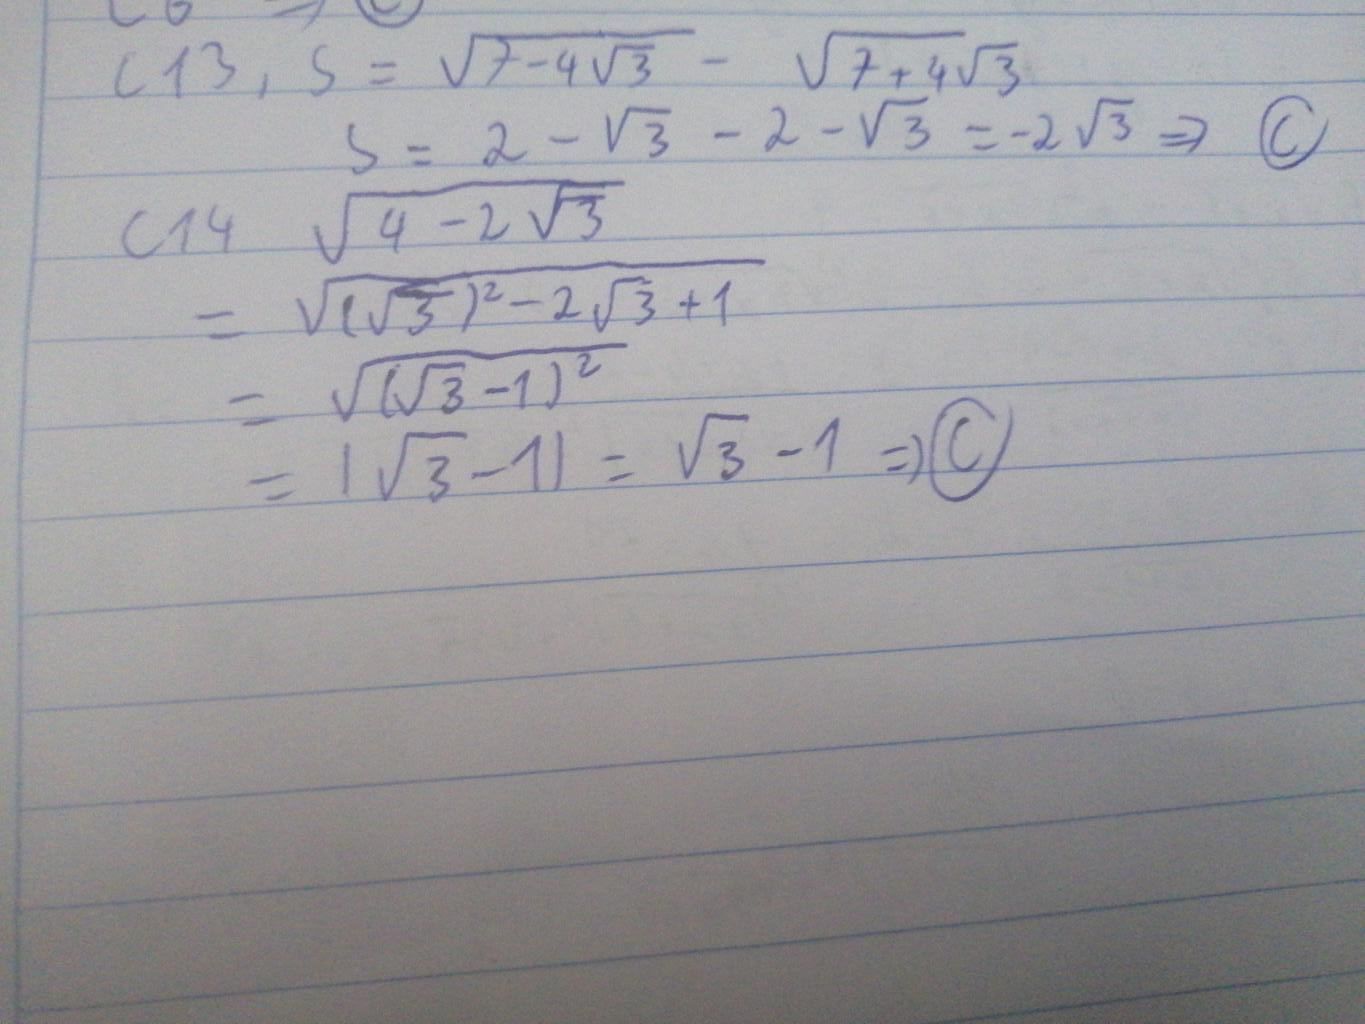 C6 => C
C13, S = √7-4√3 - √7+4√3
S = 2 - √3 - 2 - √3 = -2√3 => C
C14 √4-2√3
= √(√3)²-2√3+1
= √(√3-1)²
= |√3-1| = √3-1 => C